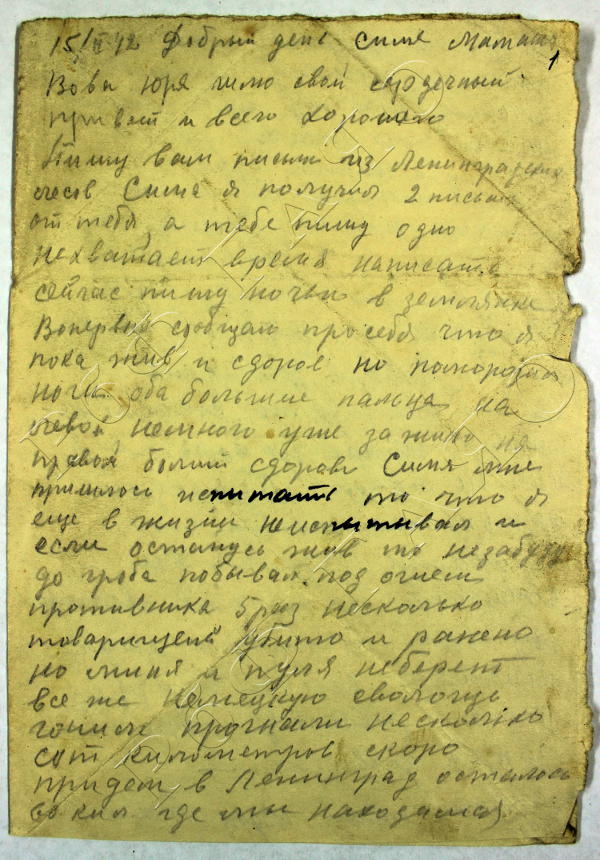 15/II 42 Добрый день Сима Мамаша
1
Вова Юря шлю свой сердечный
привет и всего хорошего
Пишу вам письмо из Ленинградских
лесов Сима я получил 2 письма
от тебя а тебе пишу одно
нехватает время написать
сейчас пишу ночью в землянке
Вопервых сообщаю просебя что я
пока жив и сдоров но поморозил
ноги оба большие пальца на
левой немного уже зажило на
правой болит сдорово Сима мне
пришлось испитать то что я
еще в жизни неиспытывал и
если останусь жив то незабуду
до гроба побывал под огнем
противника 5 раз несколько
товарищей убито и ранено
но миня и пуля неберет
все же немецкую сволочь
гоним прогнали несколько
сот километров скоро
придем в Ленинград осталось
кил где мы находимся